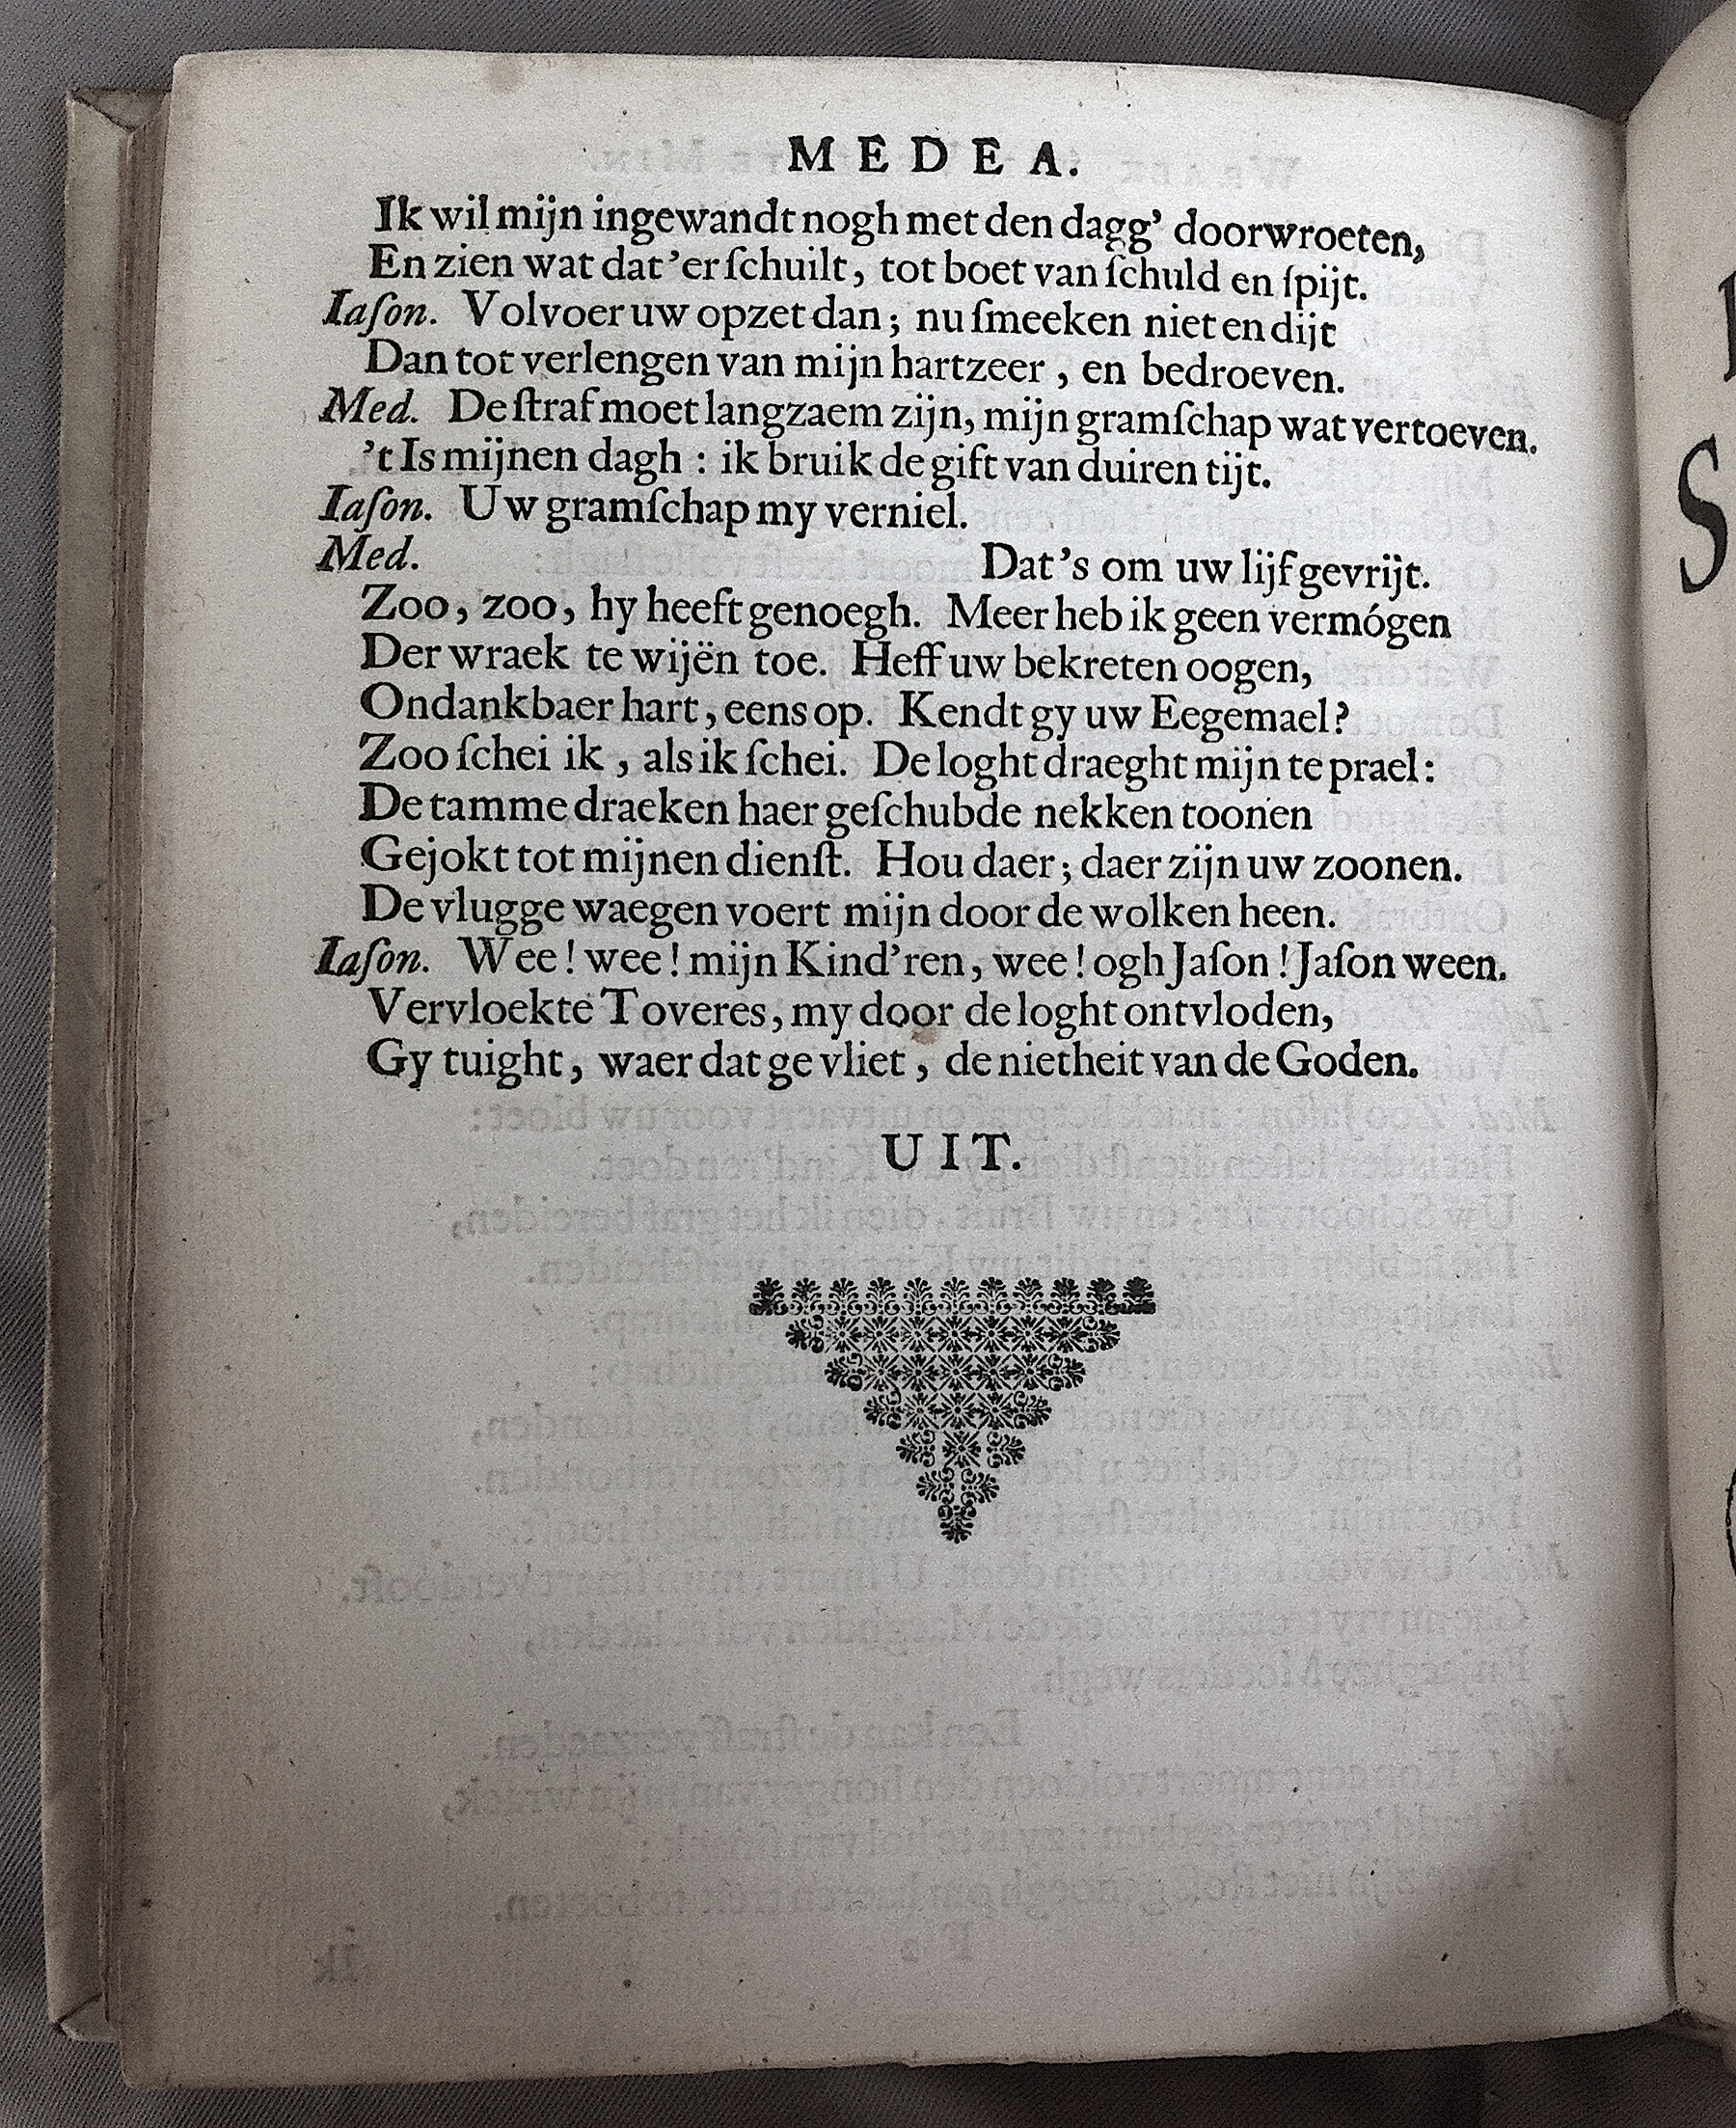 MEDEA.
Ik wil mijn ingewandt nogh met den dagg' doorwroeten,
En zien wat dat 'er ſchuilt, tot boet van ſchuld en ſpijt.
Iaſon. Volvoer uw opzet dan; nu ſmeeken niet en dijt
Dan tot verlengen van mijn hartzeer, en bedroeven.
Med. De ſtraf moet langzaem zijn, mijn gramſchap wat vertoeven.
't Is mijnen dagh: ik bruik de gift van duiren tijt.
Iaſon. Uw gramſchap my verniel.
Med. Dat's om uw lijf gevrijt.
Zoo, zoo, hy heeft genoegh. Meer heb ik geen vermógen
Der wraek te wijën toe. Heff uw bekreten oogen,
Ondankbaer hart, eens op. Kendt gy uw Eegemael?
Zoo ſchei ik, als ik ſchei. De loght draeght mijn te prael:
De tamme draeken haer geſchubde nekken toonen
Gejokt tot mijnen dienſt. Hou daer; daer zijn uw zoonen.
De vlugge waegen voert mijn door de wolken heen.
Iaſon. Wee! wee! mijn Kind'ren, wee! ogh Jaſon! Jaſon ween.
Vervloekte Toveres, my door de loght ontvloden,
Gy tuight, waer dat ge vliet, de nietheit van de Goden.
UIT.